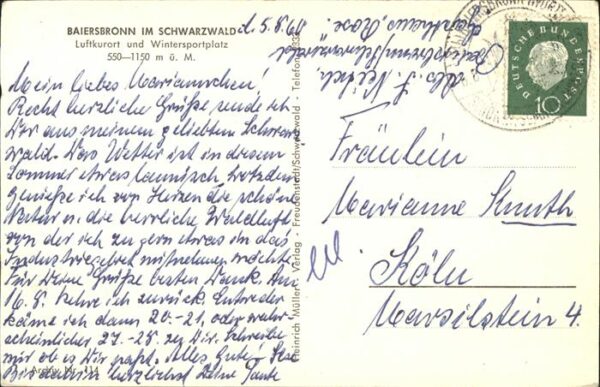 BAIERSBRONN IM SCHWARZWALD
Luftkurort und Wintersportplatz
550—1150 m ü. M.
d. 5.8.61
Mein liebes Mariannchen!
Recht herzliche Grüße sende ich
Dir aus meinem geliebten Schwarz
wald. Das Wetter ist in diesem
Sommer etwas launisch, trotzdem
genieße ich von Herzen die schöne
Natur u. die herrliche Waldluft
von der ich zu gern etwas in das
Industriegebiet mitnehmen möchte
Für Deine Grüße besten Dank. Am
16. 8. kehre ich zurück. Entweder
käme ich dann 20.-21. oder wahr-
scheinlicher 27.-28. zu Dir. Schreibe
mir ob es Dir paßt. Alles Gute!
Bis dahin herzlichst Deine Tante
Archiv Nr. 114
Heinrich Müller - Verlag - Freudenstadt/Schwarzwald - Telefon
Abs.
Baiersbronn/Schwarzwald
Gasthaus „Rose"
DEUTSCHE BUNDESPOST
10
Fräulein
Marianne Knuth
Köln
Marsilstein 4.